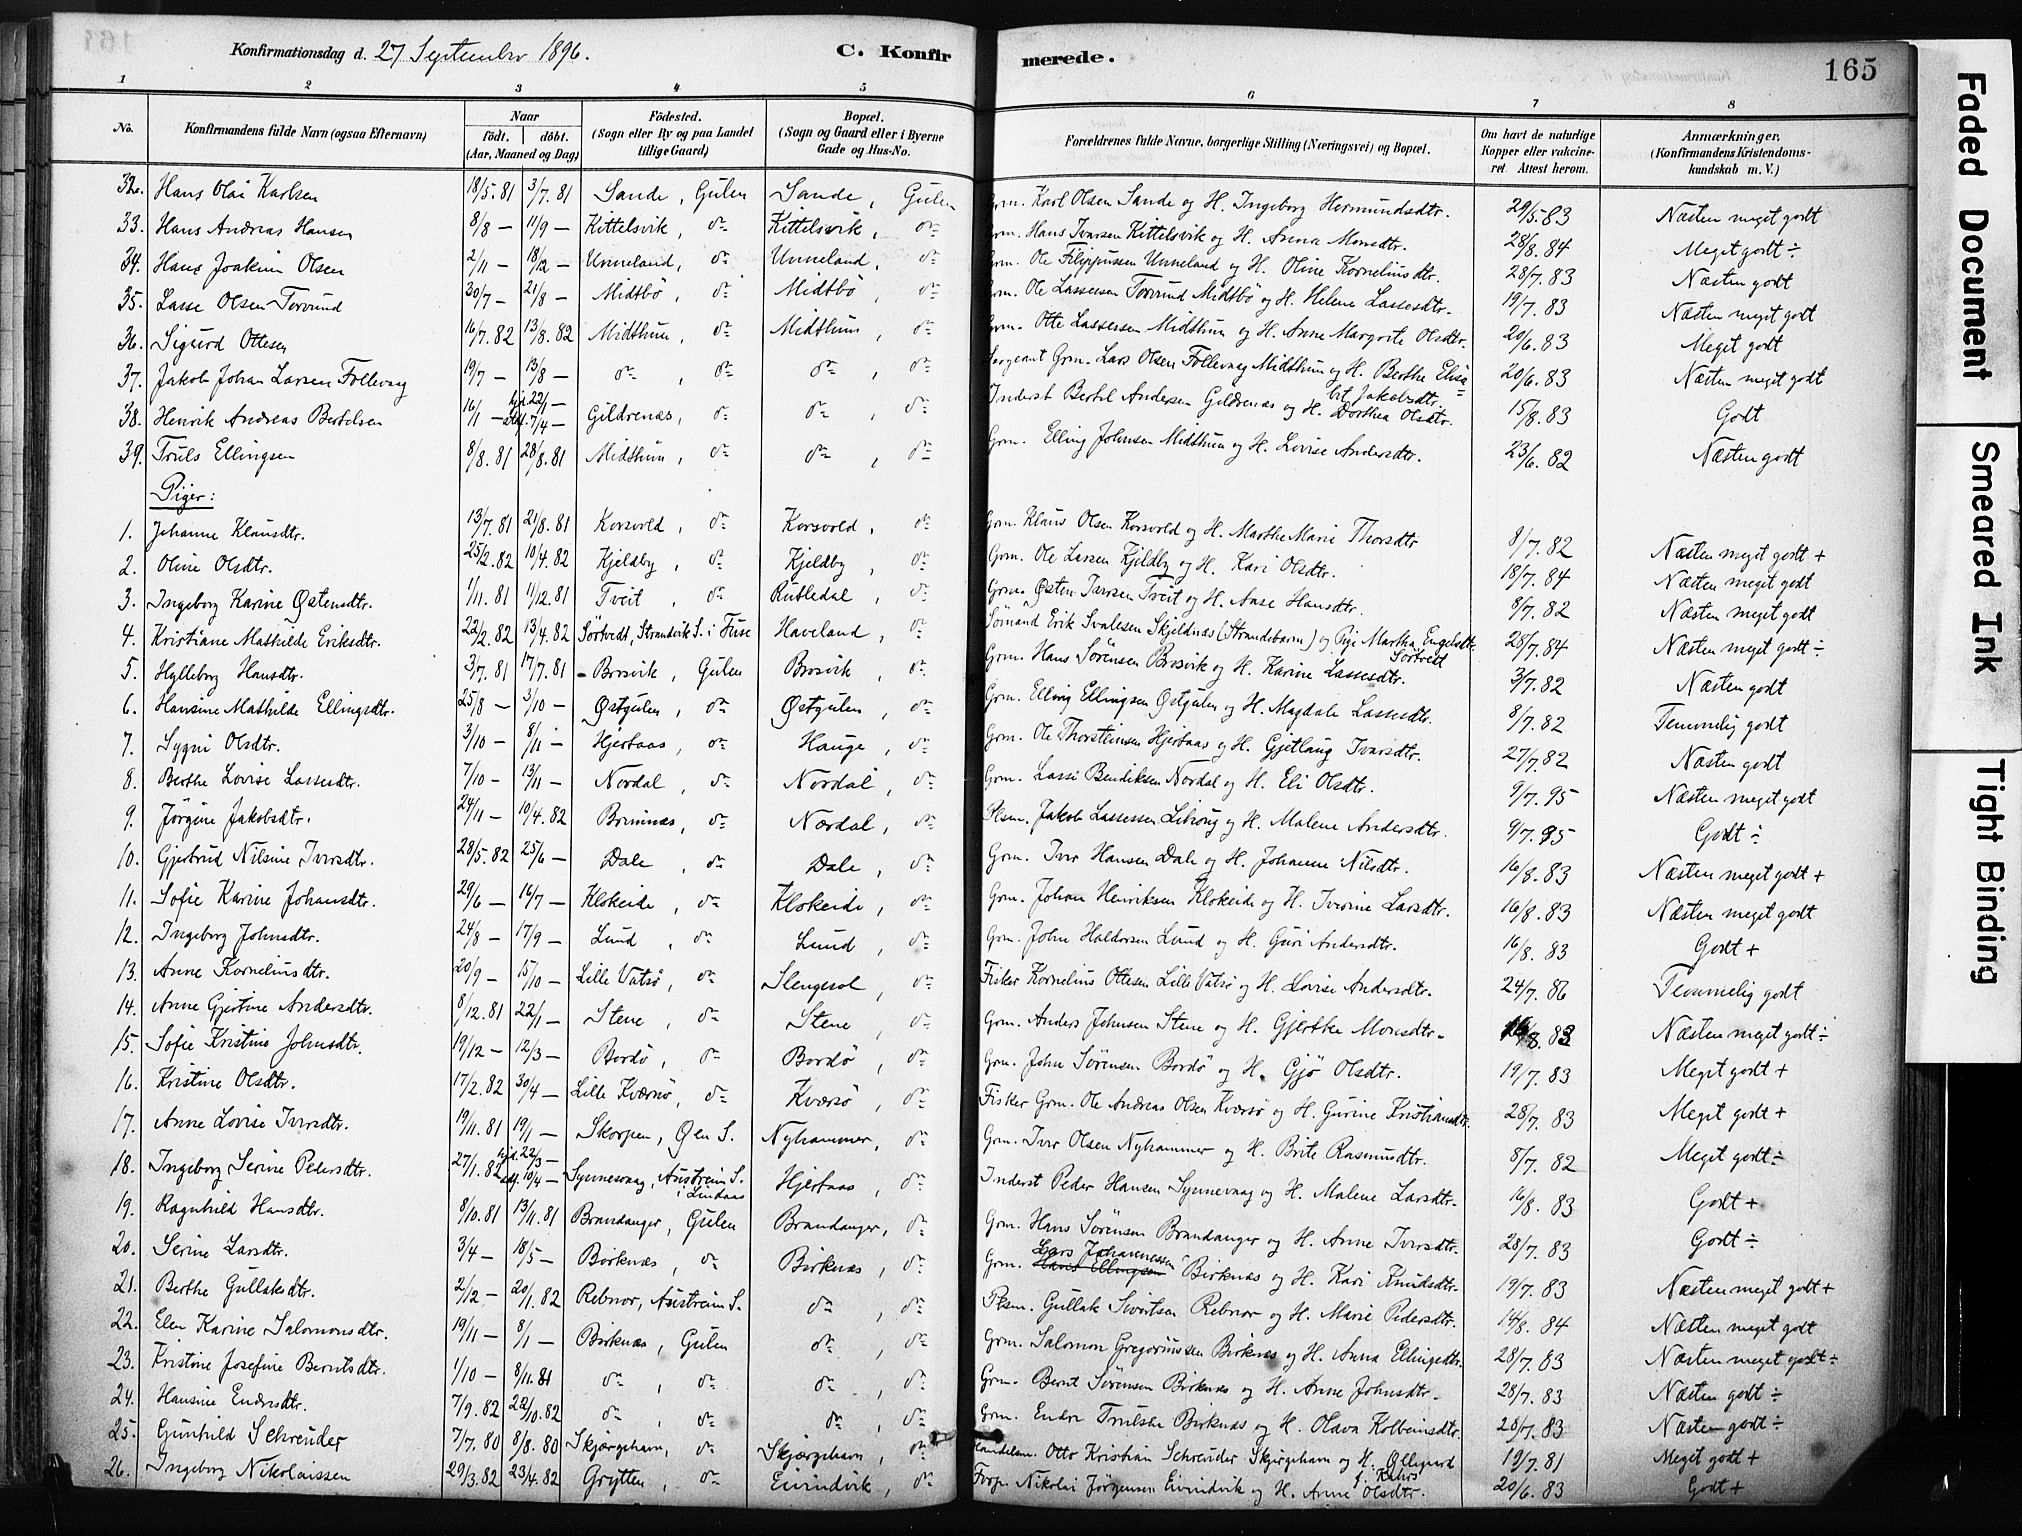 Konfirmationsdag d. 27 September 1896. C. Konfirmerede. 165
1 2 3 4 5 6 7 8
No. Konfirmandens fulde Navn (ogsaa Efternavn) Naar født. döbt. (Aar, Maaned og Dag) Födested. (Sogn eller By og paa Landet tillige Gaard) Bopæl. (Sogn og Gaard eller i Byerne Gade og Hus-No. Forældrenes fulde Navne, borgerlige Stilling (Næringsvei) og Bopæl. Om havt de naturlige Kopper eller vakcineret. Attest herom. Anmærkninger. (Konfirmandens Kristendomskundskab m. V.)
32. Hans Olai Karlsen 18/5. 81 3/7. 81 Sande, Gulen Sande, Gulen Grm. Karl Olsen Sande og H. Ingeborg Hermundsdtr. 29/5. 83 Næsten meget godt
33. Hans Andreas Hansen 8/8 — 11/9 — Kittelsvik, do Kittelsvik, do Grm. Hans Ivarsen Kittelsvik og H. Anna Monsdtr. 28/8. 84 Meget godt ÷
34. Hans Joakim Olsen 2/11 — 18/12 — Unneland, do Unneland, do Grm. Ole Filippussen Unneland og H. Oline Korneliusdtr. 28/7. 83 Næsten godt
35. Lasse Olsen Torvund 30/7 — 21/8 — Midtbö, do Midtbö, do Grm. Ole Lassesen Torvund Midtbö og H. Helene Lassesdtr. 19/7. 83 Næsten meget godt
36. Sigurd Ottesen 16/7. 82 13/8. 82 Midthun, do Midthun, do Grm. Otte Lassessen Midthun og H. Anne Margrete Olsdtr. 20/6. 83 Meget godt
37. Jakob Johan Larsen Follevaag 19/7 — 13/8 — do, do do, do Sergeant Grm. Lars Olsen Follevaag Midthun og H. Berthe Elisabet Jakobsdtr. 20/6. 83 Næsten meget godt
38. Henrik Andreas Bertelsen 16/1 — hjd. 22/1 — stdf. 7/4 — Gildrenæs, do do, do Inderst Bertel Andersen Gildrenæs og H. Dorthea Olsdtr. 15/8. 83 Godt
39. Truls Ellingsen 8/8. 81 28/8. 81 Midthun, do do, do Grm. Elling Johnsen Midthun og H. Lovise Andersdtr. 23/6. 82 Næsten godt
Piger:
1. Johanne Klausdtr. 13/7. 81 21/8. 81 Korsvold, do Korsvold, do Grm. Klaus Olsen Korsvold og H. Marthe Marie Thorsdtr 8/7. 82 Næsten meget godt +
2. Oline Olsdtr. 25/2. 82 10/4. 82 Kjeldby, do Kjeldby, do Grm. Ole Larsen Kjeldby og H. Kari Olsdtr. 18/7. 84 Næsten meget godt
3. Ingeborg Karine Østensdtr. 1/11. 81 11/12. 81 Tveit, do Rutledal, do Grm. Østen Iversen Tveit og H. Anse Hansdtr. 8/7. 82 Næsten meget godt
4. Kristiane Mathilde Eriksdtr. 22/2. 82 13/4. 82 Sörtvedt, Strandvik S. i Fuse Haveland, do Sömand Erik Svalesen Skjeldnæs (Strandebarm) og Pige Martha Engelsdtr. Sörtveit 28/7. 84 Næsten meget godt ÷
5. Hylleborg Hansdtr. 3/7. 81 17/7. 81 Brosvik, Gulen Brosvik, do Grm. Hans Sörensen Brosvik og H. Karine Lassesdtr. 3/7. 82 Næsten godt
6. Hansine Mathilde Ellingsdtr. 25/8 — 3/10 — Østgulen, do Østgulen, do Grm. Elling Ellingsen Østgulen og H. Magdale Lassesdtr. 8/7. 82 Temmelig godt
7. Sygni Olsdtr. 3/10 — 8/11 — Hjertaas, do Hauge, do Grm. Ole Thorsteinsen Hjertaas og H. Gjetlaug Ivarsdtr. 27/7. 82 Næsten godt
8. Berthe Lovise Lassesdtr. 7/10 — 13/11 — Nordal, do Nordal, do Grm. Lasse Bendiksen Nordal og H. Eli Olsdtr. 9/7. 95 Næsten meget godt
9. Jörgine Jakobsdtr. 24/11 — 10/4. 82 Brinnæs, do Nærdal, do Plsm. Jakob Lassessen og H. Malene Andersdtr. 9/7. 95 Godt ÷
10. Gjertrud Nilsine Iversdtr. 28/5. 82 25/6 — Dale, do Dale, do Grm. Iver Hansen Dale og H. Johanne Nilsdtr. 16/8. 83 Næsten meget godt +
11. Sofie Karine Johansdtr. 29/6 — 16/7 — Klokeide, do Klokeide, do Grm. Johan Henriksen Klokeide og H. Iverine Larsdtr. 16/8. 83 Næsten meget godt
12. Ingeborg Johnsdtr. 24/8 — 17/9 — Lund, do Lund, do Grm. John Haldorsen Lund og H. Guri Andersdtr. 16/8. 83 Godt +
13. Anne Korneliusdtr. 20/9 — 15/10 — Lille Vatsö, do Slengesol, do Fisker Kornelius Ottesen Lille Vatsö og H. Lovise Andersdtr. 24/7. 86 Temmelig godt
14. Anne Gjertine Andersdtr. 8/12. 81 22/1 — Stene, do Stene, do Grm. Anders Johnsen Stene og H. Gjerthe Monsdtr. 16/8. 83 Næsten meget godt ÷
15. Sofie Kristine Johnsdtr. 19/12 — 12/3 — Bordö, do Bordö, do Grm. John Sörensen Bordö og H. Gjö Olsdtr. 19/7. 83 Meget godt +
16. Kristine Olsdtr. 17/2. 82 30/4 — Lille Kværnö, do Kversö, do Fisker Grm. Ole Andreas Olsen Kversö og H. Gurine Kristiansdtr. 28/7. 83 Meget godt +
17. Anne Lovise Iversdtr. 19/11. 81 19/1 — Skorpen, Øen S. Nyhammer, do Grm. Iver Olsen Nyhammer og H. Brite Rasmusdtr. 8/7. 82 Meget godt ÷
18. Ingeborg Serine Pedersdtr. 27/1. 82 hjd. 22/3 — stdf. 10/4 — Synnevaag, Austrheim S. i Lindaas Hjertaas, do Inderst Peder Hansen Synnevaag og H. Malene Larsdtr. 16/8. 83 Godt +
19. Ragnhild Hansdtr. 8/10. 81 13/11. 81 Brandanger, Gulen Brandanger, do Grm. Hans Sörensen Brandanger og H. Anne Iversdtr. 28/7. 83 Godt ÷
20. Serine Larsdtr. 3/4 — 18/5 — Birknæs, do Birknæs, do Grm. Hans Ellingsen Lars Johannessen Birknæs og H. Kari Knudsdtr. 19/7. 83 Næsten meget godt +
21. Berthe Gullaksdtr. 2/12 — 20/1. 82 Rebnor, Austreim S. do, do Plsm. Gullak Sivertsen Rebnor og H. Marie Pedersdtr. 14/8. 84 Næsten meget godt
22. Elen Karine Salomonsdtr. 19/11 — 8/1 — Birknæs, Gulen do, do Grm. Salomon Gregoriussen Birknes og H. Anna Ellingsdtr. 28/7. 83 Næsten meget godt ÷
23. Kristine Josefine Berntsdtr. 1/10 — 8/11. 81 do, do do, do Grm. Bernt Sörensen Birknæs og H. Anne Johnsdtr. 28/7. 83 Næsten godt ÷
24. Hansine Endresdtr. 7/9. 82 22/10. 82 do, do do, do Grm. Endre Trulsen Birknæs og H. Olava Kolbeinsdtr. 28/7. 83 Næsten godt ÷
25. Gunhild Schreuder 7/7. 80 8/8. 80 Skjærgehavn, do Skjærgehavn, do Handelsm. Otto Kristian Schreuder Skjærgehavn og H. Øllegaard f. Kahrs 19/7. 81 Meget godt +
26. Ingeborg Nikolaissen 29/3. 82 23/4. 82 Grytten, do Eivindvik, do Forp. Nikolai Jörgensen Eivindvik og H. Anne Olsdtr. 20/6. 83 Godt +
Faded Document Smeared Ink Tight Binding